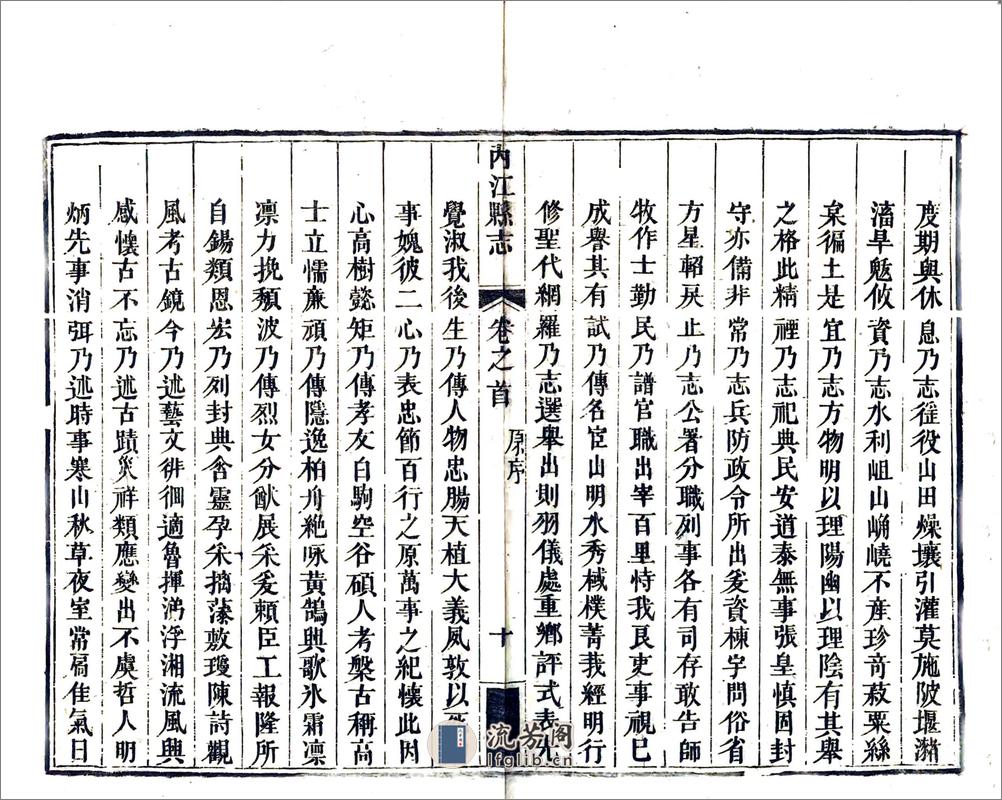 度期與休息乃志徭役山田燥壤引灌莫施陂堰瀦
滀旱魃攸資乃志水利岨山嶒嶢不産珍奇菽粟絲
枲徧土是宜乃志方物明以理陽幽以理陰有其舉
之格此精禋乃志祀典民安道泰無事張皇慎固封
守亦備非常乃志兵防政令所出爰資棟宇問俗省
方星軺戾止乃志公署分職列事各有司存敢告師
牧作士勤民乃譜官職出宰百里恃我良吏事視已
成譽其有試乃傳名宦山明水秀棫樸菁莪經明行
修聖代網羅乃志選舉出則羽儀處重鄉評式表
覺淑我後生乃傳人物忠腸天植大義夙敦以
事媿彼二心乃表忠節百行之原萬事之紀懷此因
心高樹懿矩乃傳孝友白駒空谷碩人考槃古稱高
士立懦亷頑乃傳隱逸柏舟絶咏黃鵠興歌氷霜凛
凛力挽頽波乃傳烈女分猷展采爰頼臣工報隆所
自錫類恩宏乃列封典含靈孕采摛藻敷瓊陳詩觀
風考古鏡今乃述藝文徘徊適魯揮涕浮湘流風興
感懷古不忘乃述古蹟災祥類應變出不虞哲人明
炳先事消弭乃述時事寒山秋草夜室常扃佳氣日
內江縣志
卷之首
原序
十
流芳阁
lfglib.com